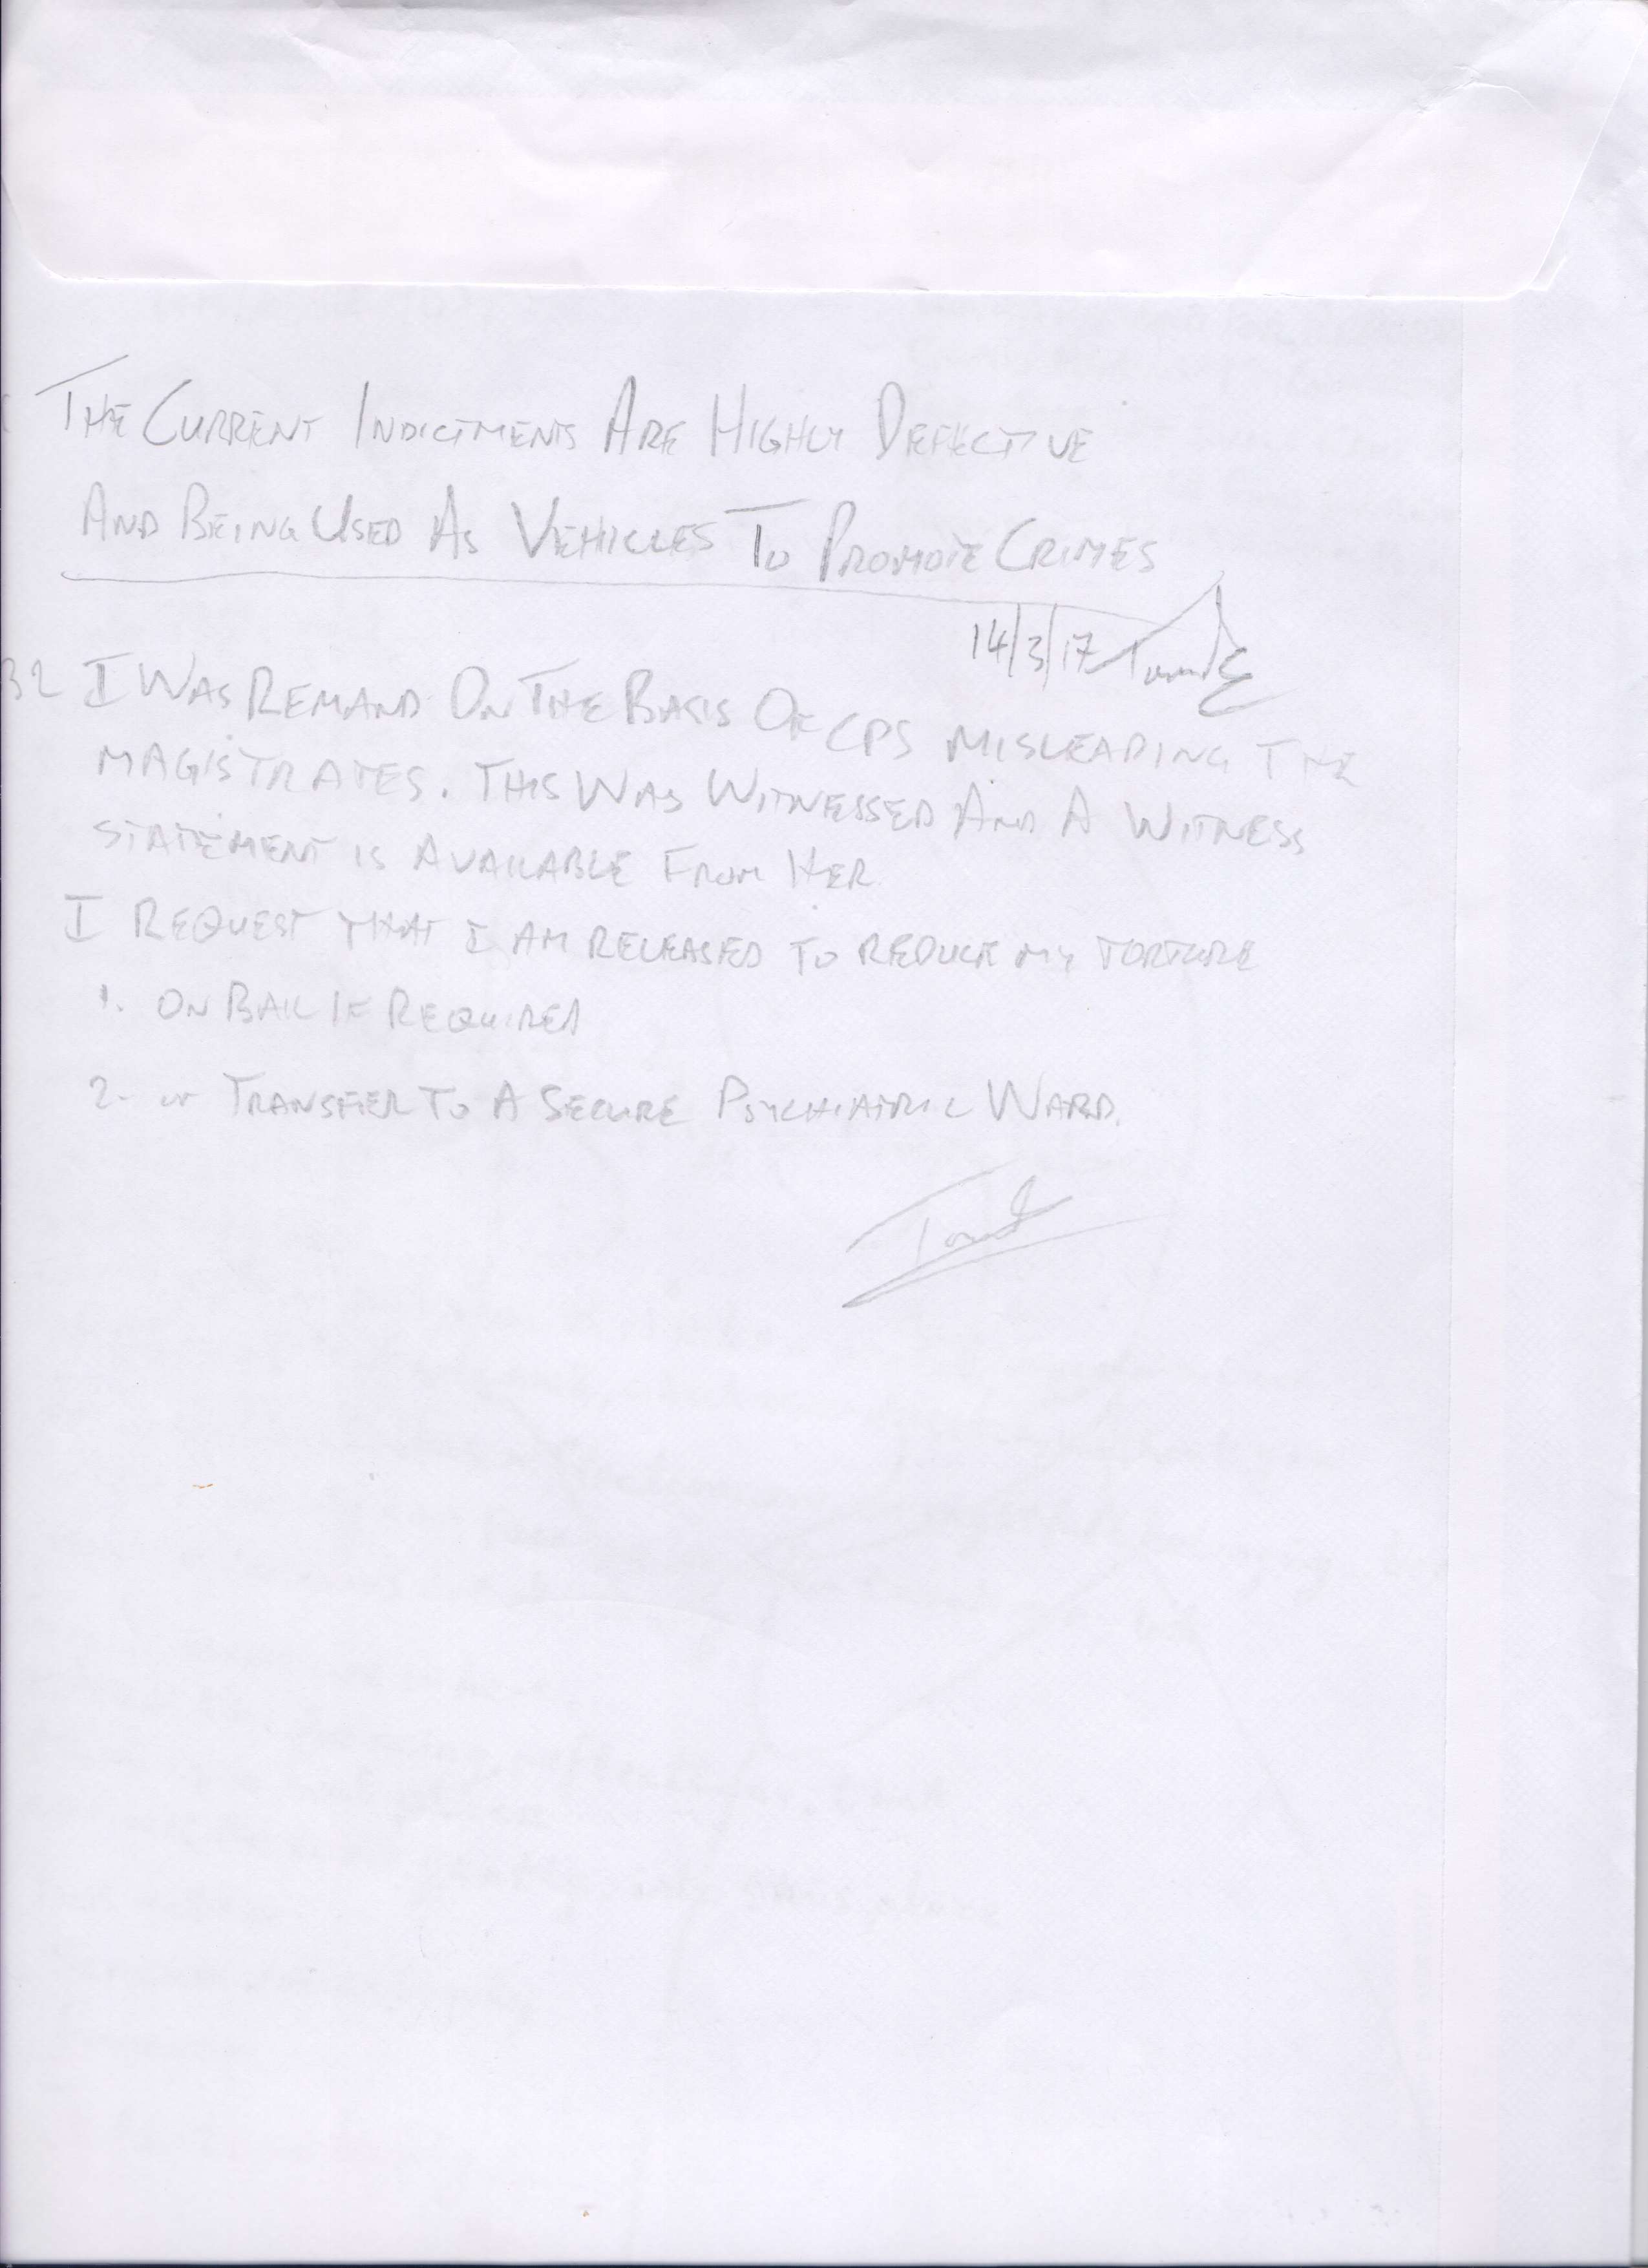 THE CURRENT INDICTMENTS ARE HIGHLY DEFECTIVE
AND BEING USED AS VEHICLES TO PROMOTE CRIMES
14/3/17
32 I WAS REMAND ON THE BASIS OF CPS MISLEADING THE
MAGISTRATES. THIS WAS WITNESSED AND A WITNESS
STATEMENT IS AVAILABLE FROM HER
I REQUEST THAT I AM RELEASED TO REDUCE MY TORTURE
1. ON BAIL IF REQUIRED
2. or TRANSFER TO A SECURE PSYCHIATRIC WARD.